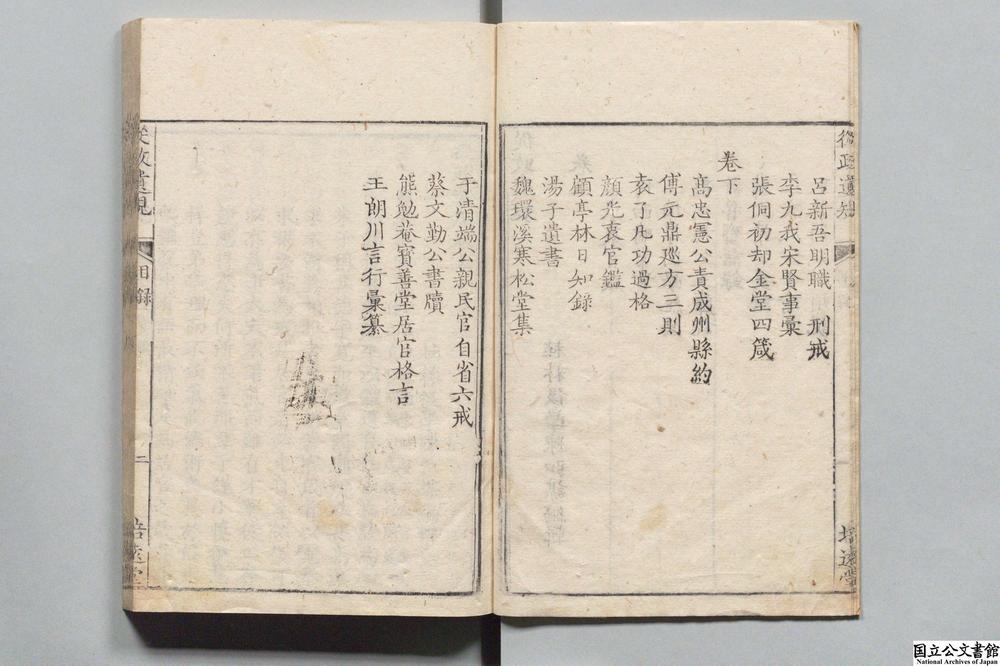 呂新吾明職 刑戒
李九我宋賢事彙
張侗初却金堂四箴
卷下
高忠憲公責成州縣約
傅元鼎巡方三則
袁了凡功過格
顏光衷官鑑
顧亭林日知錄
湯子遺書
魏環溪寒松堂集
于清端公親民官自省六戒
蔡文勤公書牘
熊勉菴寶善堂居官格言
王朗川言行彙纂
從政遺規
目錄
二
培遠堂
国立公文書館
National Archives of Japan